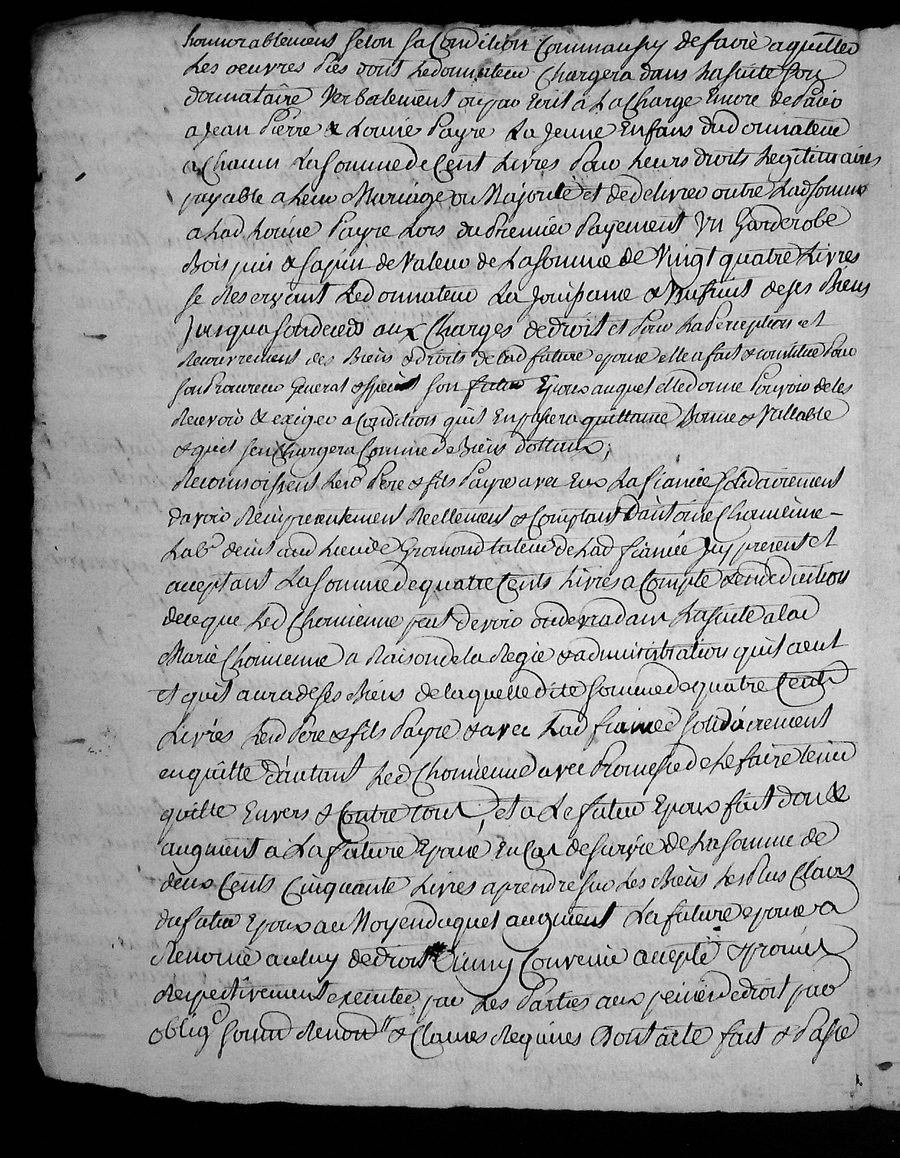 honnorablement selon sa Condition Comm'aussy de faire aquitter
Les oeuvres Pies dont Ledonnateur Chargera dans La suite son
donnataire Verbalement ou par Ecrit a La Charge Encore de Paier
a Jean Pierre & Louise Payre La Jeune Enfans dud donnateur
a Chacun La Somme de Cent Livres Pour Leurs droits Legitimaires
payable a Leur Mariage ou Majorité et de delivrer outre Lad somme
a Lad Louise Payre Lors du Premier Payement Un Garderobe
Bois pin & sapin de Valeur de La somme de Vingt quatre Livres
se Reservant Led donnateur La Jouissance & Usufruit de ses Biens
Jusqua son deceds aux Charges de droit et Pour La Perception et
Recouvrement des Biens & droits de Lad future epouse elle a fait & constitué Pour
son Procureur General & special son futur Epoux auquel elle donne Pouvoir de les
Recevoir & exiger a Condition quil En passera quittance Bonne & Vallable
& quil sen Chargera Comme de Biens dottaux;
Reconnoissent Lesd Pere & fils Payre avec Eux La fiancée solidairement
davoir Reçu presentement Reellement & Comptant d'antoine Chomienne
Labr deint aud Lieu de Gromond tuteur de Lad fiancée Icy present et
acceptant La somme de quatre Cents Livres a Compte & en deduction
de ce que Led Chomienne peut devoir ou devra dans La suite a lad
Marie Chomienne a Raison de la Regie & administration quil a eut
et quil aura de ses Biens de laquelle dite somme de quatre Cents
Livres Lesd Pere & fils Payre & avec Lad fiancée solidairement
en quitte d'autant Led Chomienne avec Promesse de Le faire tenir
quitte Envers & Contre tous, et a Le futur Epoux fait don &
augment a La future Epouse En Cas de survie de La somme de
deux Cents Cinquante Livres a prendre sur Les Biens Les Plus Clairs
du futur Epoux au Moyen duquel augment La future epouse a
Renoncé a celuy de droit ainsy Convenu accepté & promis
Respectivement executer par Les Parties aux peines de droit par
obligons soumons Renonons & Clauses Requises Dont acte fait & Passé